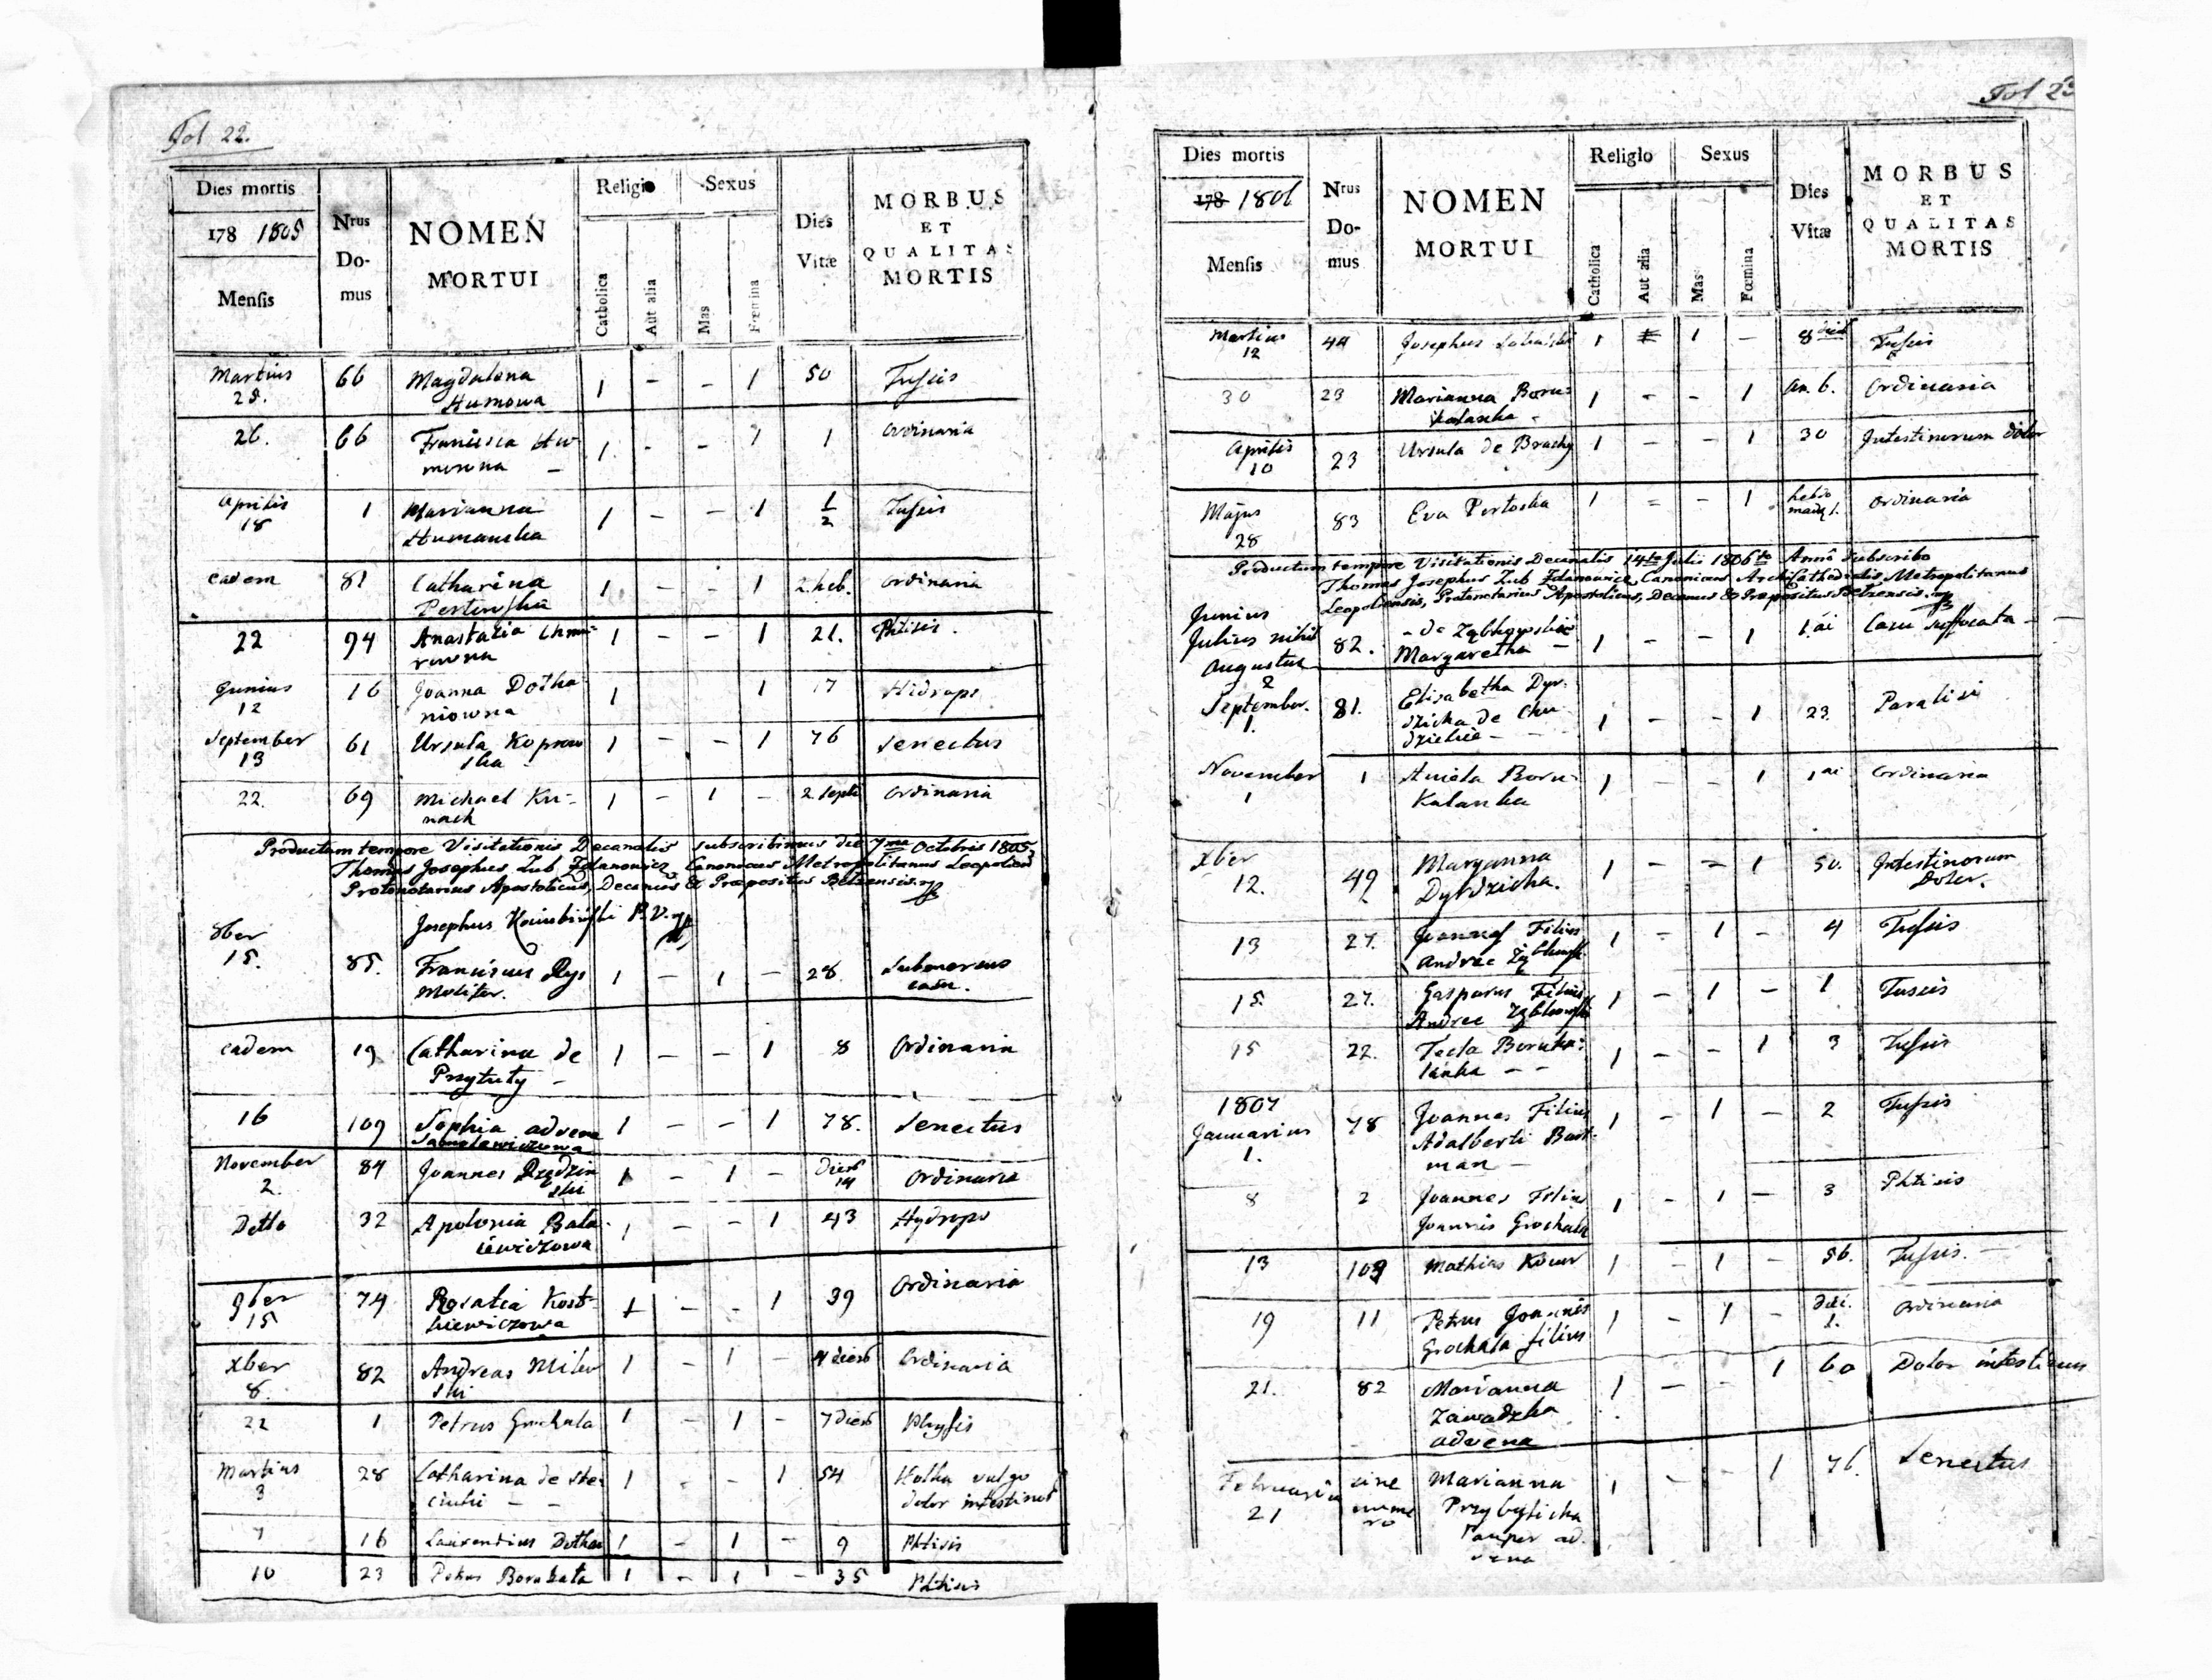 Fol 22.
Dies mortis
178 1805
Mensis
Nrus
Do-
mus
NOMEN
MORTUI
Religio
Catholica
Aut alia
Sexus
Mas
Fœmina
Dies
Vitæ
MORBUS
ET
QUALITAS
MORTIS
Martius 25. 66 Magdalena 1 - - 1 50 Tussis
Humowa
26. 66 Francisca Hu 1 - - 1 1 Ordinaria
mowna -
Aprilis 18 1 Marianna 1 - - 1 1/2 Tussis
Humanska
eadem 81 Catharina 1 - - 1 2. heb. Ordinaria
22 94 Anastazia 1 - - 1 21. Phtisis.
Junius 12 16 Joanna Dotha 1 1 17 Hidrops
niowna
September 13 61 Ursula Koprow 1 - - 1 76 Senectus
ska
22. 69 Michael Ku- 1 - 1 - 2 Septi Ordinaria
nach
Productum tempore Visitationis Decanalis subscribimus die 7ma Octobris 1805
Thomas Josephus Zub Zdanowicz Canonicus Metropolitanus Leopolien
Protonotarius Apostolicus, Decanus & Præpositus Betzensis.
Josephus P. V.
8ber 15. 85. Franciscus Rys 1 - 1 - 28. Submersus
Molitor. casu.
eadem 19 Catharina de 1 - - 1 8 Ordinaria
Przytuty -
16 109 Sophia advena 1 - - 1 78. Senectus
November 2. 84 Joannes Rzędzin 1 - 1 - Dies 14 Ordinaria
ski
Detto 32 Apolonia Bala- 1 - - 1 43 Hydrops
iewiczowa
9ber 15 74 Rosalia Kost- 1 - - 1 39 Ordinaria
kiewiczowa
Xber 8. 82 Andreas Milew 1 - 1 - 4 dies Ordinaria
ski
22 1 Petrus Grochala 1 - 1 - 7 dies
Martius 3 28 Catharina de Ste- 1 - - 1 54 Kolka vulgo
dolor intestinor
7 16 Laurentius Dotha 1 - 1 - 9 Phtisis
10 23 Petrus Borukata 1 - 1 - 35 Phtisis
Fol 23
Dies mortis
178 1806
Mensis
Nrus
Do-
mus
NOMEN
MORTUI
Religio
Catholica
Aut alia
Sexus
Mas
Fœmina
Dies
Vitæ
MORBUS
ET
QUALITAS
MORTIS
Martius 12 44 Josephus 1 1 - 8 dies Tussis
30 23 Marianna Boru- 1 - - 1 an. 6. Ordinaria
kalanka -
Aprilis 10 23 Ursula de Brachy 1 - - 1 30 Intestinorum dolor
Majus 28 83 Eva Pertoska 1 - - 1 hebdo Ordinaria
Productum tempore Visitationis Decanalis 14ta Julii 1806to Anni subscribo
Thomas Josephus Zub Zdanowicz Canonicus ArchiCathedralis Metropolitanus
Leopoliensis, Protonotarius Apostolicus, Decanus & Præpositus Betzensis.
Junius
Julius nihil
Augustus 2 82. - de Ząbkowskie 1 - - 1 1. ai Casu suffocata -
Margaretha -
September. 1. 81. Elisabetha Dyr- 1 - - 1 23. Paralisi
dzicka de Chu-
dzickie -
November 1 1 Aniela Boru- 1 - - 1 1 ai Ordinaria
Kalanka
Xber 12. 49 Maryanna 1 - - 1 50. Intestinorum
Dyrdzicka. Dolor.
13 27. Joannes Filius 1 - 1 - 4 Tussis
Andreæ Ząbkowski
15. 27. Gasparus Filius 1 - 1 - 1 Tussis
Andreæ Ząbkowski
15 22. Tecla Boruka- 1 - - 1 3 Tussis
lanka - -
1807
Januarius 1. 78 Joannes Filius 1 - 1 - 2 Tussis
Adalberti Bart-
man -
8 2 Joannes Filius 1 - 1 - 3 Phtisis
Joannis Grochala
13 109 Mathias 1 - 1 - 56. Tussis. -
19 11 Petrus Joannis 1 - 1 - 1. Ordinaria
Grochala filius
21. 82 Marianna 1 - - 1 60 Dolor intestinum
Zawadzka
advena
Februarius 21 sine nume ro Marianna 1 - - 1 76. Senectus
Przybylicka
Pauper ad-
vena